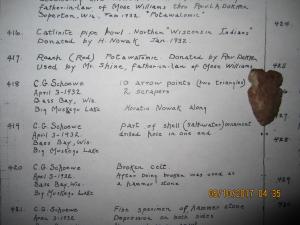 father-in-law of Moses Williams thru Paul A. Doktor
Soperton, Wis, Jan 1932 "Potawatomie"
416. Catlinite pipe bowl. Northern "Wisconsin Indians"
Donated by H. Nowak Jan 1932.
417. Roach (Red) Potawatomie. Donated by
Used by Mr. Shine, father-in-law of Moses Williams
418 C.G. Schoewe 10 arrow points (two triangles)
April 3-1932. 2 scrapers
Bass Bay, Wis.
Big Muskego Lake Horatio Nowak along
419 C.G. Schoewe part of shell (saltwater) ornament
April 3-1932. drilled hole in one end
Bass Bay, Wis.
Big Muskego Lake
420 C.G. Schoewe Broken celt.
April 3-1932. After being broken was used as
Bass Bay, Wis. a hammer stone
Big Muskego Lake
421. C.G. Schoewe Fine specimen of hammer stone
April 3-1932 Depression on both sides
05/10/2017 04:35